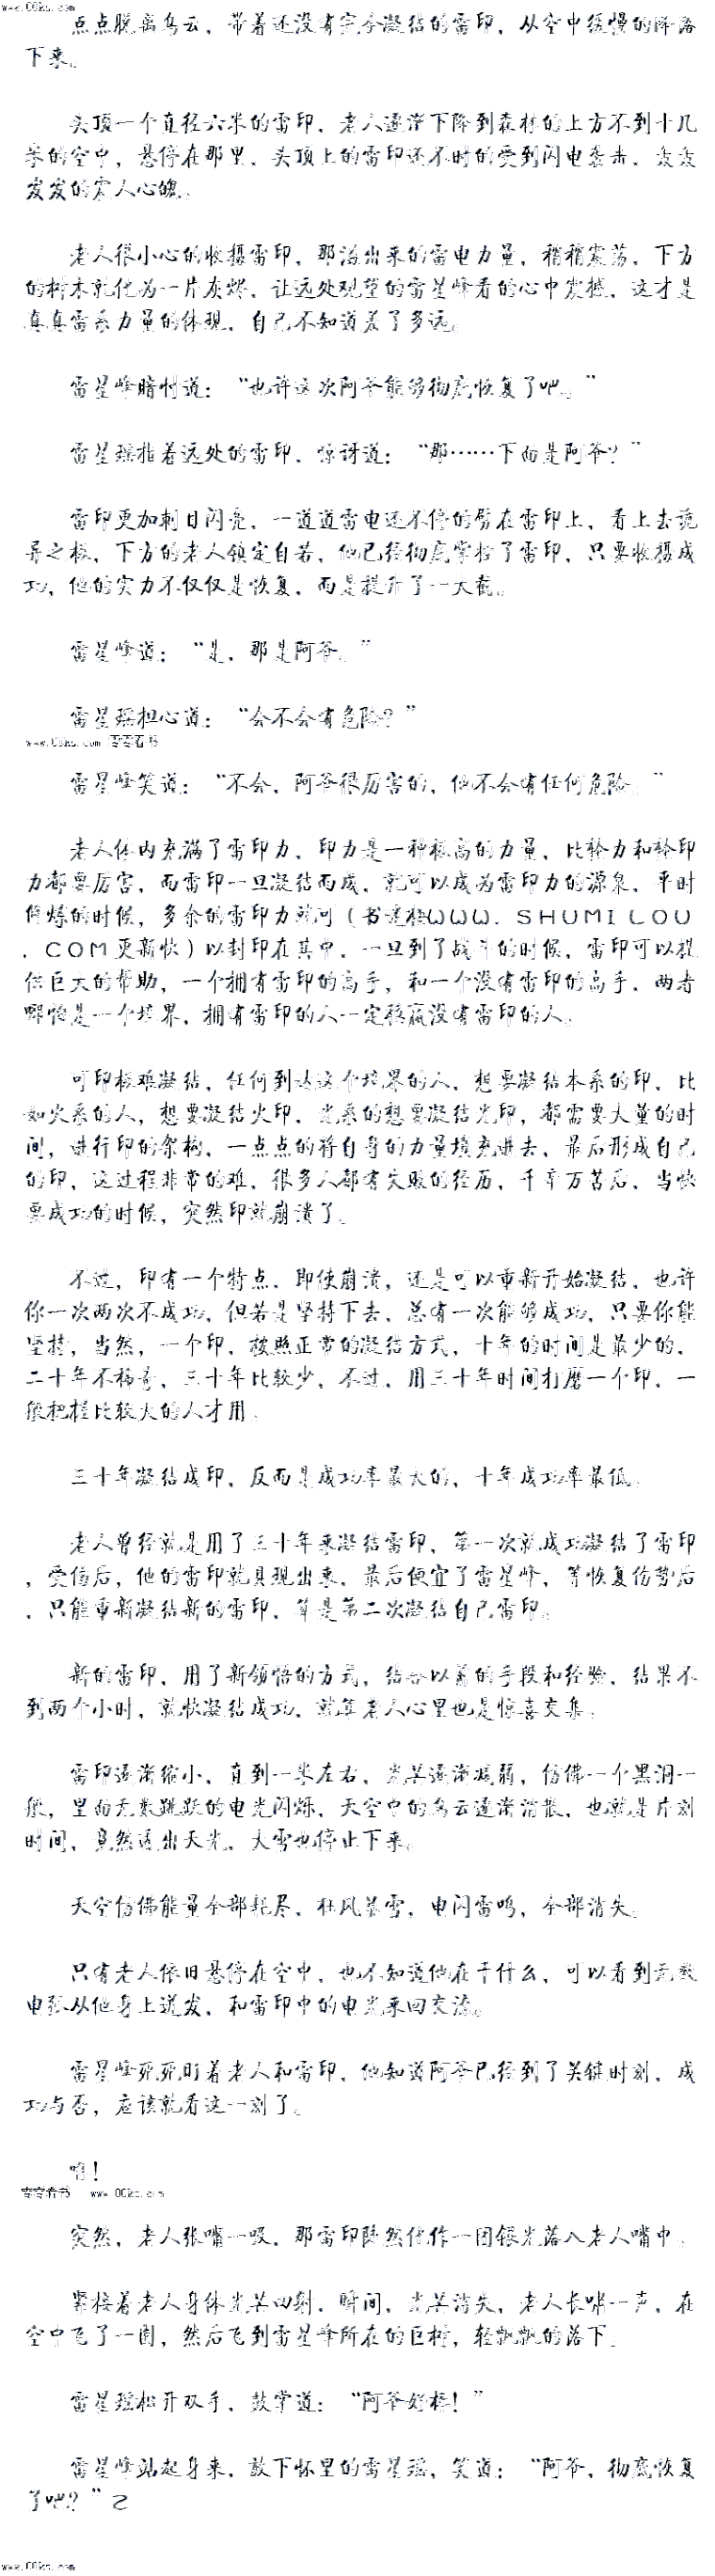 www.00ks.com
点点脱离乌云，带着还没有完全凝结的雷印，从空中缓慢的降落
下来。
头顶一个直径六米的雷印，老人逐渐下降到森林的上方不到十几
米的空中，悬停在那里，头顶上的雷印还不时的受到闪电袭击，轰轰
发发的震人心魄。
老人很小心的收摄雷印，那溢出来的雷电力量，稍稍震荡，下方
的树木就化为一片灰烬，让远处观望的雷星峰看的心中震撼，这才是
真真雷系力量的体现，自己不知道差了多远。
雷星峰暗忖道：“也许这次阿爷能够彻底恢复了吧。”
雷星瑶指着远处的雷印，惊讶道：“那……下面是阿爷？”
雷印更加刺目闪亮，一道道雷电还不停的劈在雷印上，看上去诡
异之极，下方的老人镇定自若，他已经彻底掌控了雷印，只要收摄成
功，他的实力不仅仅是恢复，而是提升了一大截。
雷星峰道：“是，那是阿爷。”
雷星瑶担心道：“会不会有危险？”
www.00ks.com 零零看书
雷星峰笑道：“不会，阿爷很厉害的，他不会有任何危险。”
老人体内充满了雷印力，印力是一种极高的力量，比轮力和轮印
力都要厉害，而雷印一旦凝结而成，就可以成为雷印力的源泉，平时
修炼的时候，多余的雷印力就可（书迷楼ＷＷＷ．ＳＨＵＭＩＬＯＵ
．ＣＯＭ更新快）以封印在其中，一旦到了战斗的时候，雷印可以提
供巨大的帮助，一个拥有雷印的高手，和一个没有雷印的高手，两者
哪怕是一个境界，拥有雷印的人一定稳赢没有雷印的人。
可印极难凝结，任何到达这个境界的人，想要凝结本系的印，比
如火系的人，想要凝结火印，光系的想要凝结光印，都需要大量的时
间，进行印的架构，一点点的将自身的力量填充进去，最后形成自己
的印，这过程非常的难，很多人都有失败的经历，千辛万苦后，当快
要成功的时候，突然印就崩溃了。
不过，印有一个特点，即使崩溃，还是可以重新开始凝结，也许
你一次两次不成功，但若是坚持下去，总有一次能够成功，只要你能
坚持，当然，一个印，按照正常的凝结方式，十年的时间是最少的，
二十年不稀奇，三十年比较少，不过，用三十年时间打磨一个印，一
般把握比较大的人才用。
三十年凝结成印，反而是成功率最大的，十年成功率最低。
老人曾经就是用了三十年来凝结雷印，第一次就成功凝结了雷印
，受伤后，他的雷印就具现出来，最后便宜了雷星峰，等恢复伤势后
，只能重新凝结新的雷印，算是第二次凝结自己雷印。
新的雷印，用了新领悟的方式，结合以前的手段和经验，结果不
到两个小时，就快凝结成功，就算老人心里也是惊喜交集。
雷印逐渐缩小，直到一米左右，光芒逐渐减弱，仿佛一个黑洞一
般，里面无数跳跃的电光闪烁，天空中的乌云逐渐消散，也就是片刻
时间，竟然透出天光，大雪也停止下来。
天空仿佛能量全部耗尽，狂风暴雪，电闪雷鸣，全部消失。
只有老人依旧悬停在空中，也不知道他在干什么，可以看到无数
电弧从他身上迸发，和雷印中的电光来回交流。
雷星峰死死盯着老人和雷印，他知道阿爷已经到了关键时刻，成
功与否，应该就看这一刻了。
！
零零看书 www.00ks.com
突然，老人张嘴一吸，那雷印陡然化作一团银光落入老人嘴中。
紧接着老人身体光芒四射，瞬间，光芒消失，老人长啸一声，在
空中飞了一圈，然后飞到雷星峰所在的巨树，轻飘飘的落下。
雷星瑶松开双手，鼓掌道：“阿爷好棒！”
雷星峰站起身来，放下怀里的雷星瑶，笑道：“阿爷，彻底恢复
了吧？”２
www.00ks.com